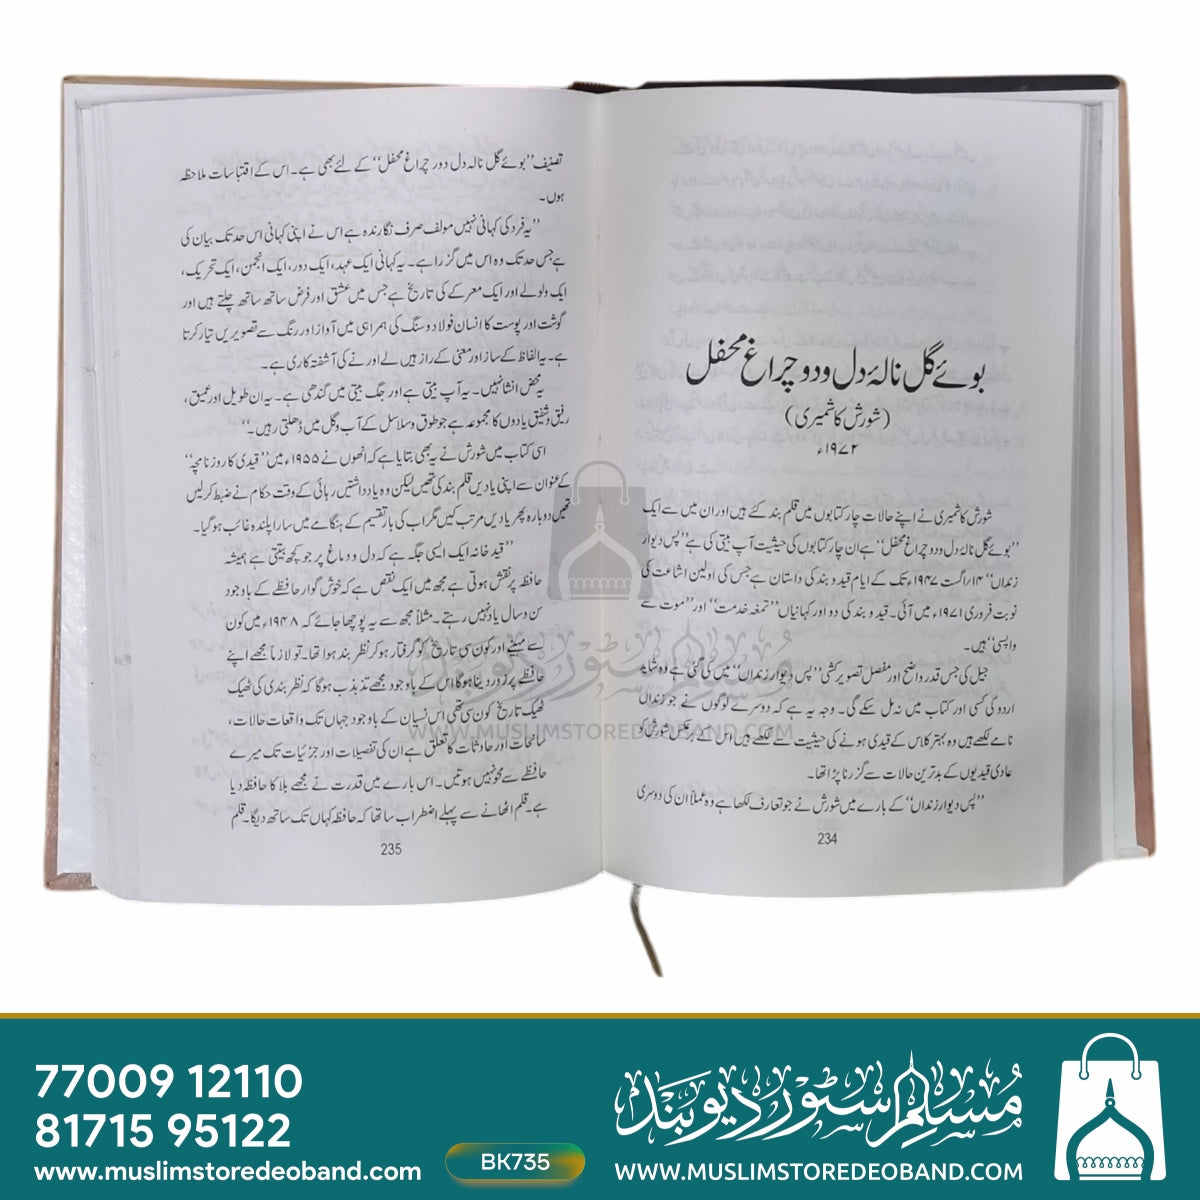 بوئے گل نالۂ دل دود چراغ محفل
(شورش کاشمیری)
۱۹۷۲ء
شورش کاشمیری نے اپنے حالات چار کتابوں میں قلم بند کئے ہیں اور ان میں سے ایک
”بوئے گل نالۂ دل دود چراغ محفل“ ہے ان چار کتابوں کی حیثیت آپ بیتی کی ہے ”پس دیوار
زنداں“ ۱۴/اگست ۱۹۴۷ء تک کے ایام قید و بند کی داستان ہے جس کی اولین اشاعت کی
نوبت فروری ۱۹۷۱ء میں آئی۔ قید و بند کی دو اور کہانیاں ”تمغہ خدمت“ اور ”موت سے
واپسی“ ہیں۔
جیل کی جس قدر واضح اور مفصل تصویر کشی ”پس دیوار زنداں“ میں کی گئی ہے وہ شاید
اردو کی کسی اور کتاب میں نہ مل سکے گی۔ وجہ یہ ہے کہ دوسرے لوگوں نے جو زنداں
نامے لکھے ہیں وہ بہتر کلاس کے قیدی ہونے کی حیثیت سے لکھے ہیں اس کے برعکس شورش کو
عادی قیدیوں کے بدترین حالات سے گزرنا پڑا تھا۔
”پس دیوار زنداں“ کے بارے میں شورش نے جو تعارف لکھا ہے وہ عملاً ان کی دوسری
234
تصنیف ”بوئے گل نالہ دل دور چراغ محفل“ کے لئے بھی ہے۔ اس کے اقتباسات ملاحظہ
ہوں۔
”یہ فرد کی کہانی نہیں مولف صرف نگارندہ ہے اس نے اپنی کہانی اس حد تک بیان کی
ہے جس حد تک وہ اس میں گزرا ہے۔ یہ کہانی ایک عہد، ایک دور، ایک انجمن، ایک تحریک،
ایک ولولے اور ایک معرکے کی تاریخ ہے جس میں عشق اور فرض ساتھ ساتھ چلتے ہیں اور
گوشت اور پوست کا انسان فولاد و سنگ کی ہمراہی میں آواز اور رنگ سے تصویریں تیار کرتا
ہے۔ یہ الفاظ کے ساز اور معنی کے راز ہیں لے اور نے کی آشفتہ کاری ہے۔
یہ محض انشا نہیں۔ یہ آپ بیتی ہے اور جگ بیتی میں گندھی ہے۔ یہ ان طویل اور عمیق،
رفیق و شفیق یادوں کا مجموعہ ہے جو طوق و سلاسل کے آب و گل میں ڈھلتی رہیں۔“
اسی کتاب میں شورش نے یہ بھی بتایا ہے کہ انھوں نے ۱۹۵۵ء میں ”قیدی کا روزنامچہ“
کے عنوان سے اپنی یادیں قلم بند کی تھیں لیکن وہ یادداشتیں رہائی کے وقت حکام نے ضبط کر لیں
تھیں دوبارہ پھر یادیں مرتب کیں مگر اب کی بار تقسیم کے ہنگامے میں سارا پلندہ غائب ہو گیا۔
”قید خانہ ایک ایسی جگہ ہے کہ دل و دماغ پر جو کچھ بیتتی ہے ہمیشہ
حافظہ پر نقش ہوتی ہے مجھ میں ایک نقص ہے کہ خوش گوار حافظے کے باوجود
سن و سال یاد نہیں رہتے۔ مثلاً مجھ سے یہ پوچھا جائے کہ ۱۹۴۸ء میں کون
سے مہینے اور کون سی تاریخ کو گرفتار ہو کر نظر بند ہوا تھا۔ تو لازماً مجھے اپنے
حافظے پر زور دینا ہوگا اس کے باوجود مجھے تذبذب ہوگا کہ نظر بندی کی ٹھیک
ٹھیک تاریخ کون سی تھی اس نسیان کے باوجود جہاں تک واقعات حالات،
سانحات اور حادثات کا تعلق ہے ان کی تفصیلات اور جزئیات تک میرے
حافظے سے محو نہیں ہوتیں۔ اس بارے میں قدرت نے مجھے بلا کا حافظہ دیا
ہے۔ قلم اٹھانے سے پہلے اضطراب سا تھا کہ حافظہ کہاں تک ساتھ دیگا۔ قلم
235
مسلم سٹور دیوبند
WWW.MUSLIMSTOREDEOBAND.COM
77009 12110
81715 95122
www.muslimstoredeoband.com
BK735
مسلم سٹور دیوبند
WWW.MUSLIMSTOREDEOBAND.COM